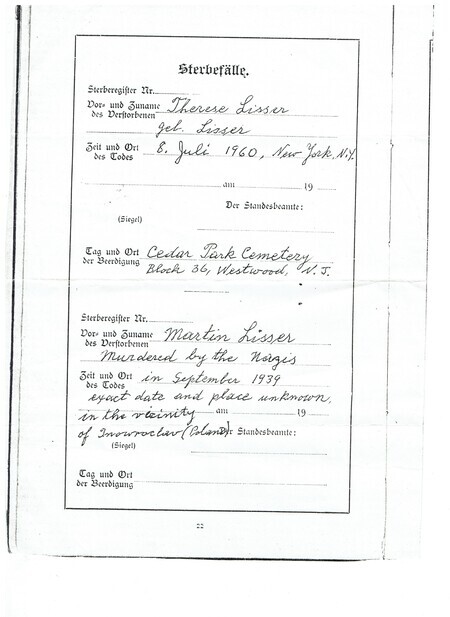 Sterbefälle.
Sterberegister Nr.
Vor- und Zuname des Verstorbenen Therese Lisser
geb. Lisser
Zeit und Ort des Todes 8. Juli 1960, New York, N.Y.
am 19
Der Standesbeamte:
(Siegel)
Tag und Ort der Beerdigung Cedar Park Cemetery
Block 36, Westwood, N.J.
Sterberegister Nr.
Vor- und Zuname des Verstorbenen Martin Lisser
Murdered by the Nazis
Zeit und Ort des Todes in September 1939
exact date and place unknown,
in the vicinity am 19
of Inowroclav (Poland) Der Standesbeamte:
(Siegel)
Tag und Ort der Beerdigung
22